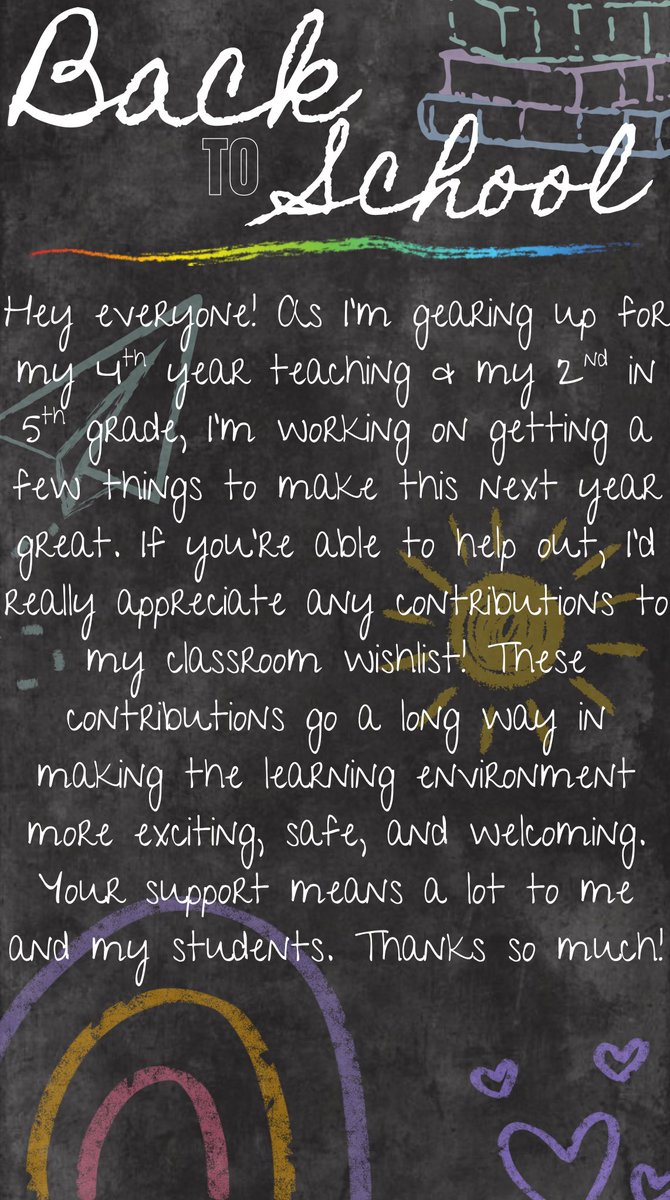 Back
TO
School
Hey everyone! As I'm gearing up for
my 4th year teaching & my 2nd in
5th grade, I'm working on getting a
few things to make this next year
great. If you're able to help out, I'd
really appreciate any contributions to
my classroom wishlist! These
contributions go a long way in
making the learning environment
more exciting, safe, and welcoming.
Your support means a lot to me
and my students. Thanks so much!